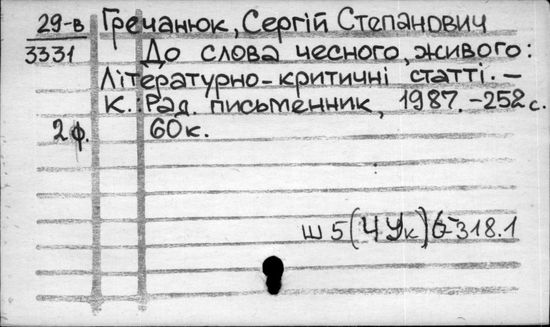 29-в Гречанюк, Сергій Степанович
3331 До слова чесного, живого:
Літературно-критичні статті. –
К.: Рад. письменник, 1987. – 252 с.
2 ф. 60 к.
Ш 5(4 Ук)6-318.1